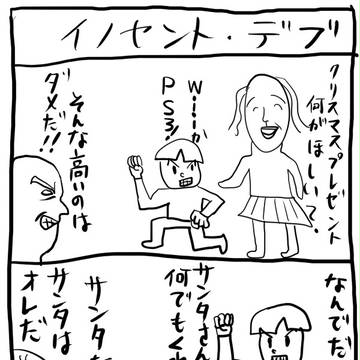 イノセント・デブ
クリスマスプレゼント
何がほしい?
Wiiか
PS3!
そんな高いのは
ダメだ!!
なんでだ
サンタさん
何でもくれ
サンタ
サンタは
オレだ